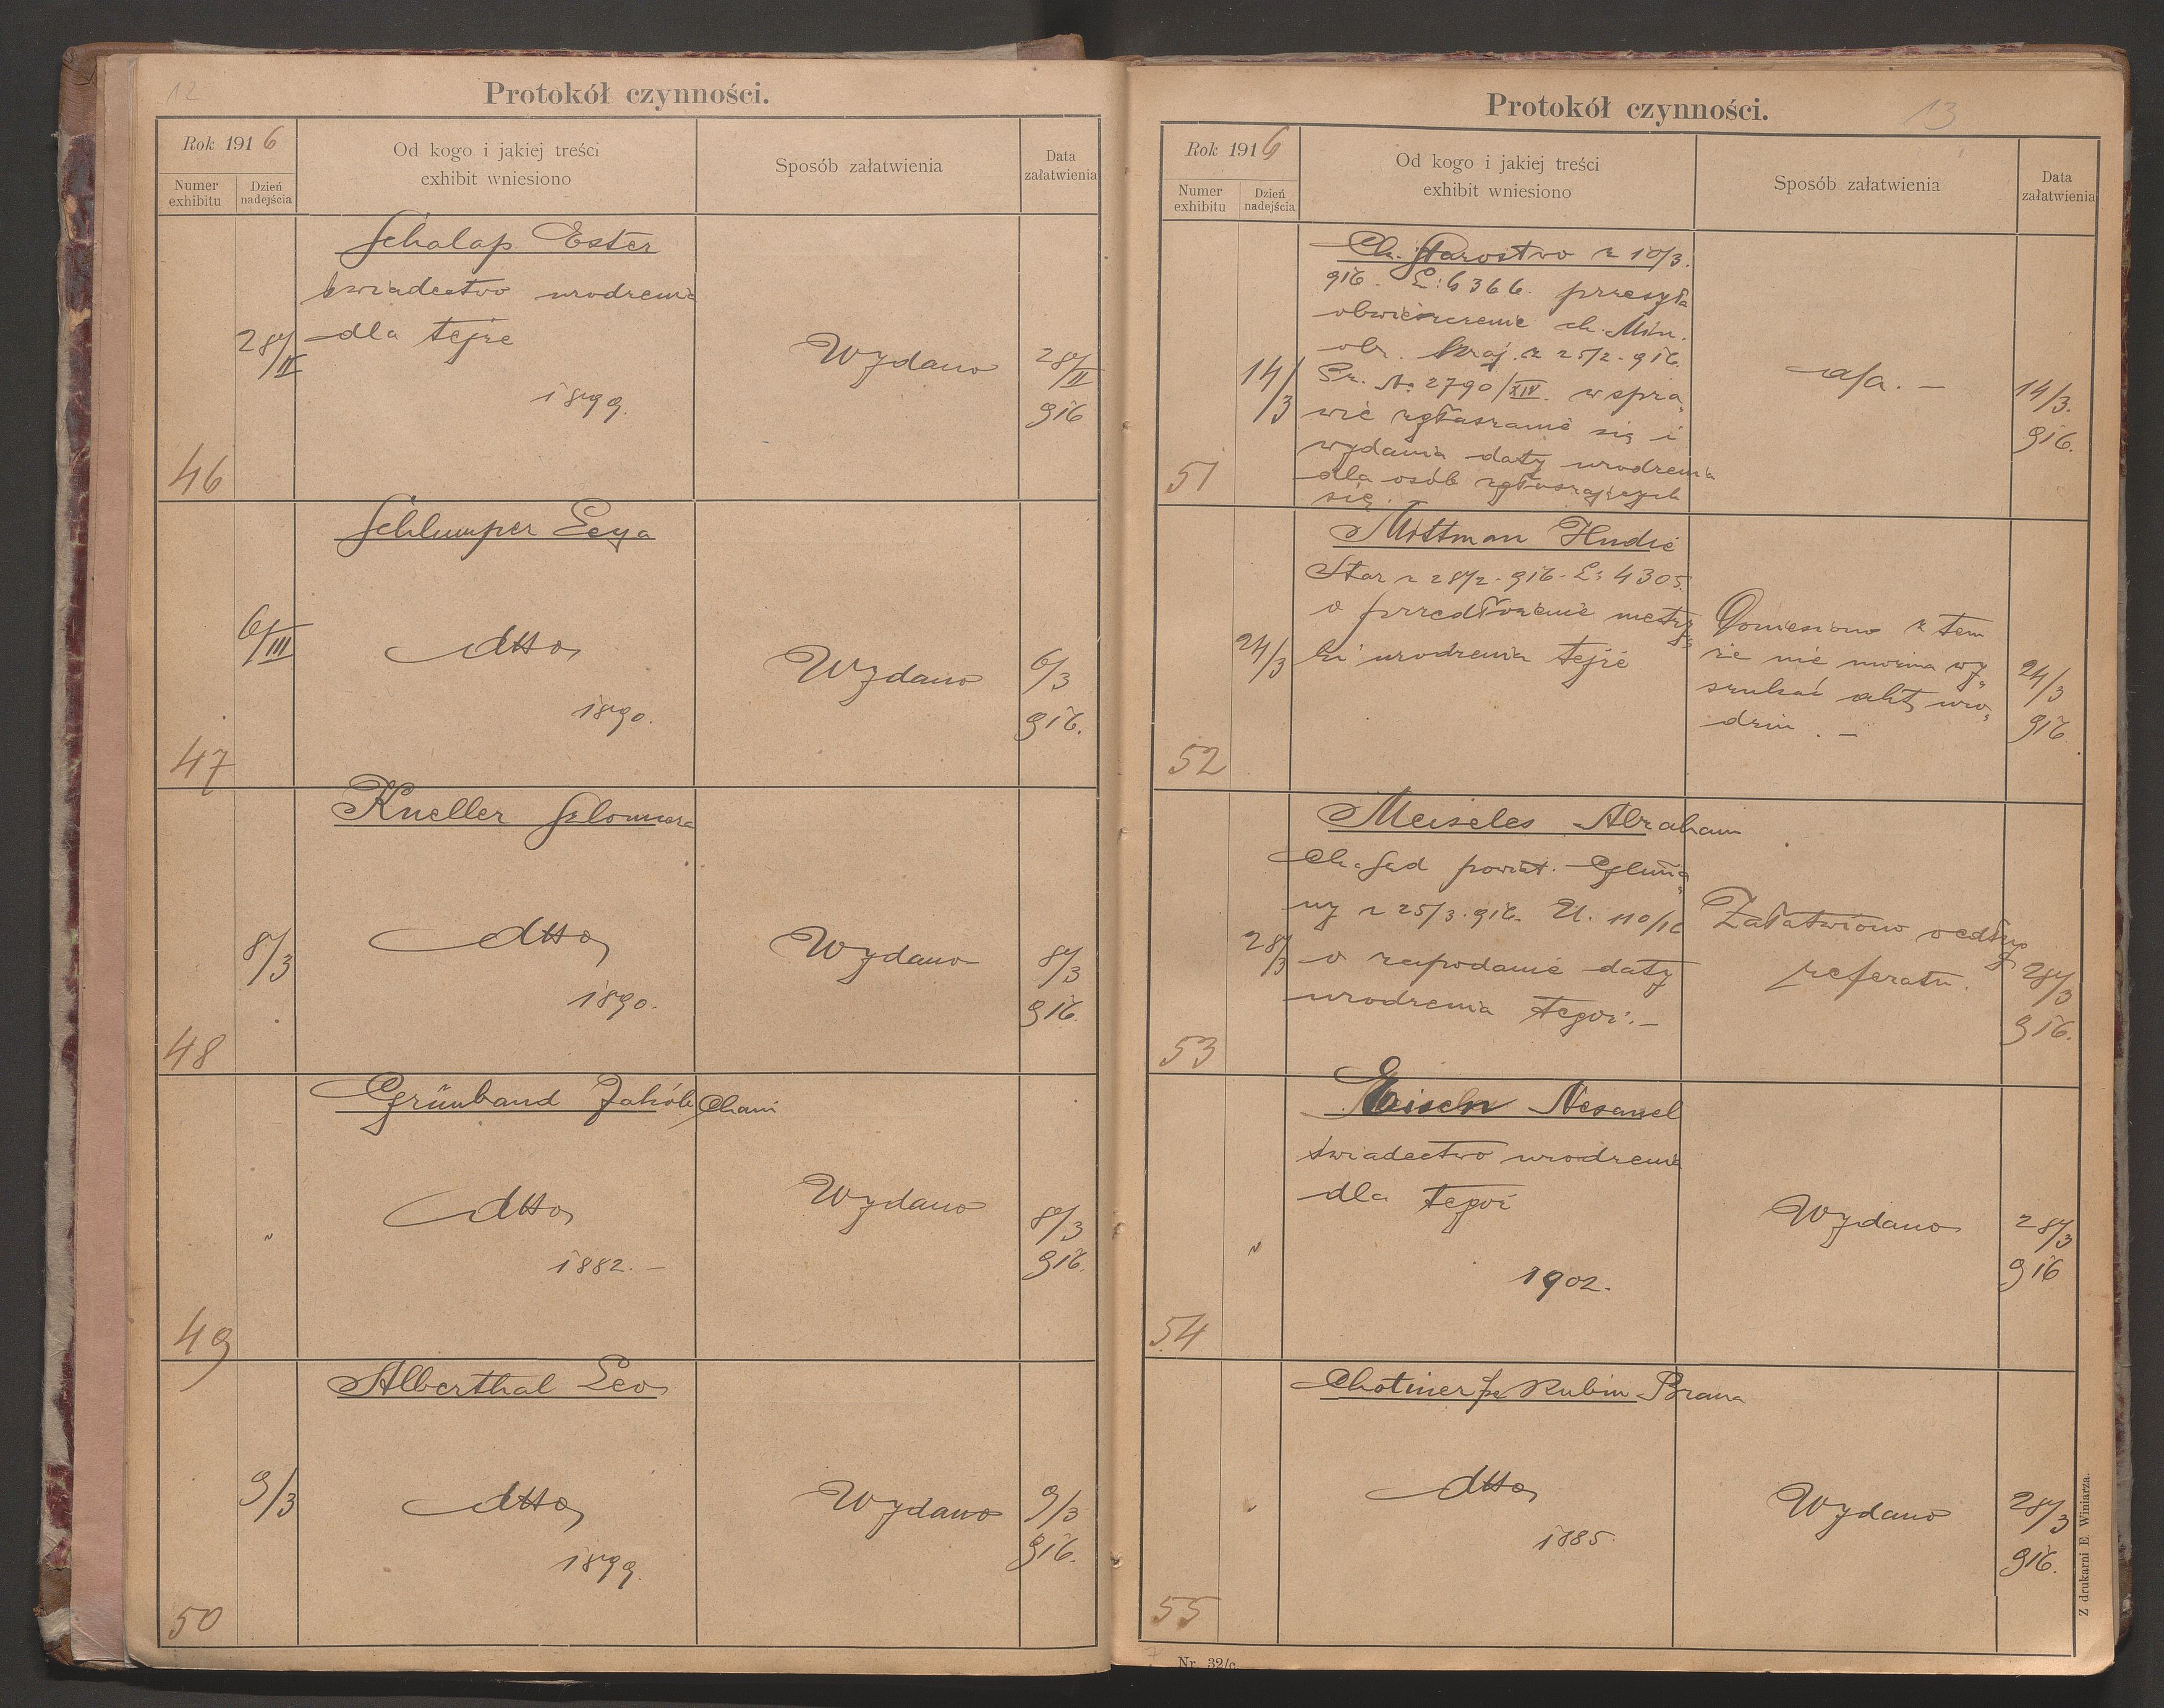 12
Protokół czynności.
Rok 1916
Numer exhibitu
Dzień nadejścia
Od kogo i jakiej treści
exhibit wniesiono
Sposób załatwienia
Data
załatwienia
Schalap Ester
świadectwo urodzenia
dla tejże
28/II
Wydano
28/II
916
1899.
46
Schlumper Leya
6/III
dtto
Wydano
6/3
916.
1890.
47
Kneller Salomea
8/3
dtto
Wydano
8/3
916.
1890.
48
Grünband Jakób Chaim
"
dtto
Wydano
8/3
916.
1882. –
49
Alberthal Leo
9/3
dtto
Wydano
9/3
916.
1899.
50
Protokół czynności.
13
Rok 1916
Numer exhibitu
Dzień nadejścia
Od kogo i jakiej treści
exhibit wniesiono
Sposób załatwienia
Data
załatwienia
Ck. Starostwo z 10/3.
916. L: 6366. przesyła
obwieszczenie ck. Min.
obr. kraj. z 25/2. 916.
Pr. No 2790/XIV. w spra„
wie zgłaszania się i
wydania daty urodzenia
dla osób zgłaszających
się.
14/3
a/a. –
14/3.
916.
51
Mittman Hudie
Star z 28/2. 916. L: 4305.
o przedłożenie metry„
ki urodzenia tejże
24/3
Doniesiono z tem
że nie można wy„
szukać akt, uro„
dzin. –
24/3
916
52
Meiseles Abraham
Ck. Sąd powiat. Glinia„
ny z 25/3. 916. U. 110/16
o zapodanie daty
urodzenia tegoż. –
28/3
Załatwiono według
referatu.
28/3
916.
53
Eisen Nesanel
świadectwo urodzenia
dla tegoż
"
Wydano
28/3
916
1902.
54
Chotiner Rubin Brana
"
dtto
Wydano
28/3
916.
1885.
55
Z drukarni E. Winiarza.
Nr. 32/c.